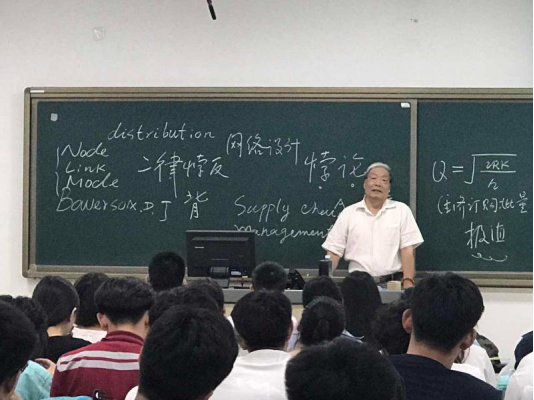 distribution
Node
Link
Mode
二律悖反
网络设计
悖论
Bowersox.D.J
背
Supply chain
Management
Q = √2RK/h
(经济订购批量
极值